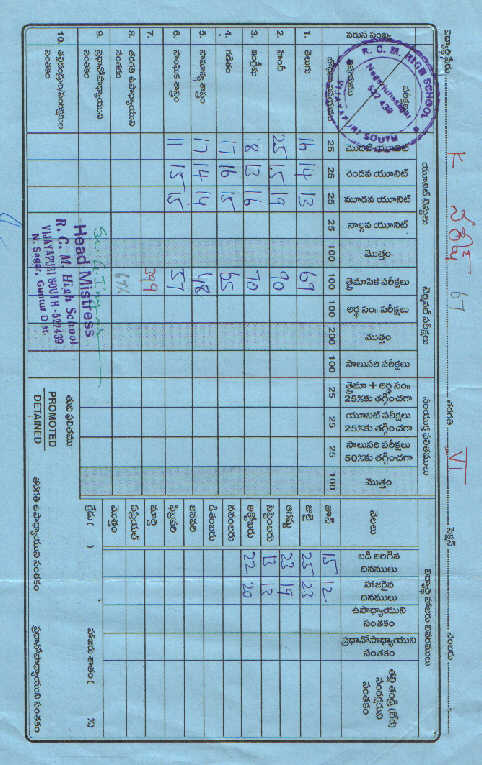 విద్యార్థి పేరు K నరేష్ 67 తరగతి VI సెక్షన్ నంబరు
వరుస సంఖ్య
యూనిట్ టెస్టులు
టెర్మినల్ పరీక్షలు
సంయుక్త ఫలితములు
విద్యార్థి హాజరు వివరములు
మొదటి యూనిట్
రెండవ యూనిట్
మూడవ యూనిట్
నాల్గవ యూనిట్
మొత్తం
త్రైమాసిక పరీక్షలు
అర్ధ సం॥ పరీక్షలు
మొత్తం
సాలుసరి పరీక్షలు
త్రైమా + అర్ధ సం॥
25%కు తగ్గించగా
యూనిట్ పరీక్షలు
25%కు తగ్గించగా
సాలుసరి పరీక్షలు
50%కు తగ్గించగా
మొత్తం
నెలలు
బడి జరిగిన
దినములు
హాజరైన
దినములు
ఉపాధ్యాయుని
సంతకం
ప్రధానోపాధ్యాయుని
సంతకం
తల్లి తండ్రి (లేక)
సంరక్షకుని
సంతకం
R. C. M. HIGH SCHOOL
VIJAYAPURI SOUTH
522 439
25 25 25 25 100 100 100 200 100 25 25 25 100
జూన్ 15 12
1. తెలుగు 16 14 13 67
జులై 25 23
2. హిందీ 25 15 19 90
ఆగష్టు 23 19
3. ఇంగ్లీషు 8 13 16 70
సెప్టెంబరు 13 13
అక్టోబరు 22 20
4. గణితం 17 16 15 65
నవంబరు
5. సామాన్య శాస్త్రం 17 14 14 48
డిశంబరు
జనవరి
6. సాంఘిక శాస్త్రం 11 15 15 57
ఫిబ్రవరి
7.
మార్చి
8. తరగతి ఉపాధ్యాయుని
సంతకం
ఏప్రియల్
మొత్తం
9. ప్రధానోపాధ్యాయుని
సంతకం
గ్రేడు ( ) హాజరు శాతం ( %)
10. తల్లిదండ్రుల/సంరక్షకుల
సంతకం
Head Mistress
R. C. M High School
VIJAYAPURI SOUTH-522439
N. Sagar, Guntur Dist.
తుది ఫలితము
PROMOTED
DETAINED
తరగతి ఉపాధ్యాయుని సంతకం
ప్రధానోపాధ్యాయుని సంతకం